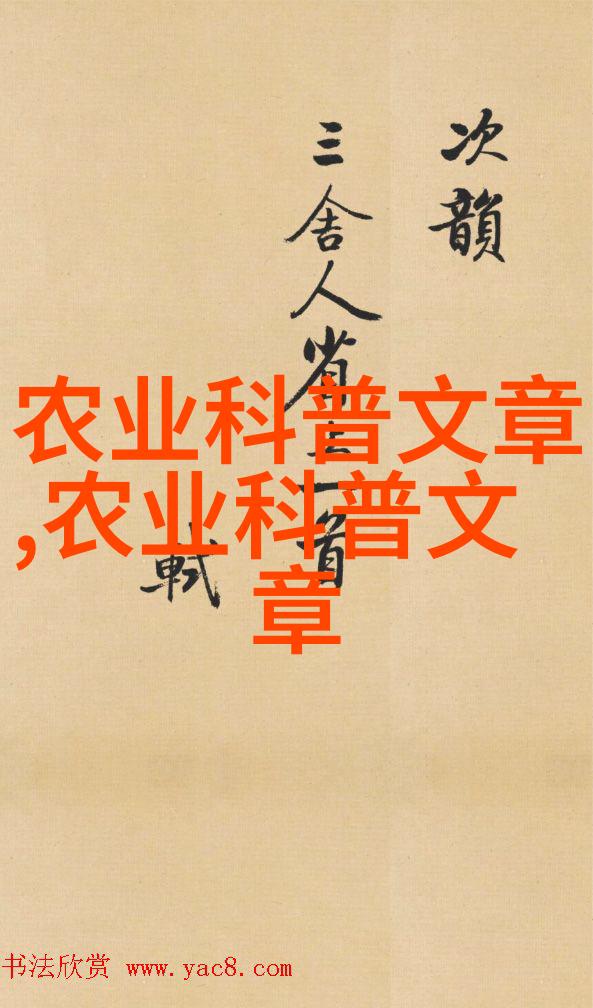 次韻
三舍人省上一首
軾
农业科普文章
,农业科普文
章
书法欣赏 www.yac8.com